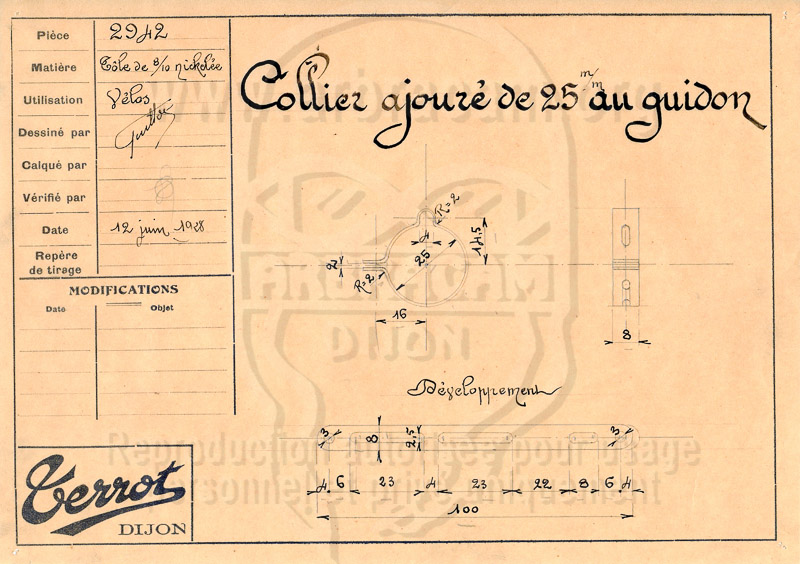 Pièce 2942
Matière Tôle de 8/10 nickelée
Utilisation Vélos
Dessiné par
Calqué par
Vérifié par
Date 12 juin 1928
Repère
de tirage
MODIFICATIONS
Date Objet
Terrot
DIJON
Collier ajouré de 25 m/m au guidon
R=2
4
14,5
25
2
R=2
16
8
ARCHACAM
DIJON
Développement
3 8 2,5 3
4 6 23 4 23 22 8 6 4
100
Reproduction autorisée pour usage
personnel et privé uniquement